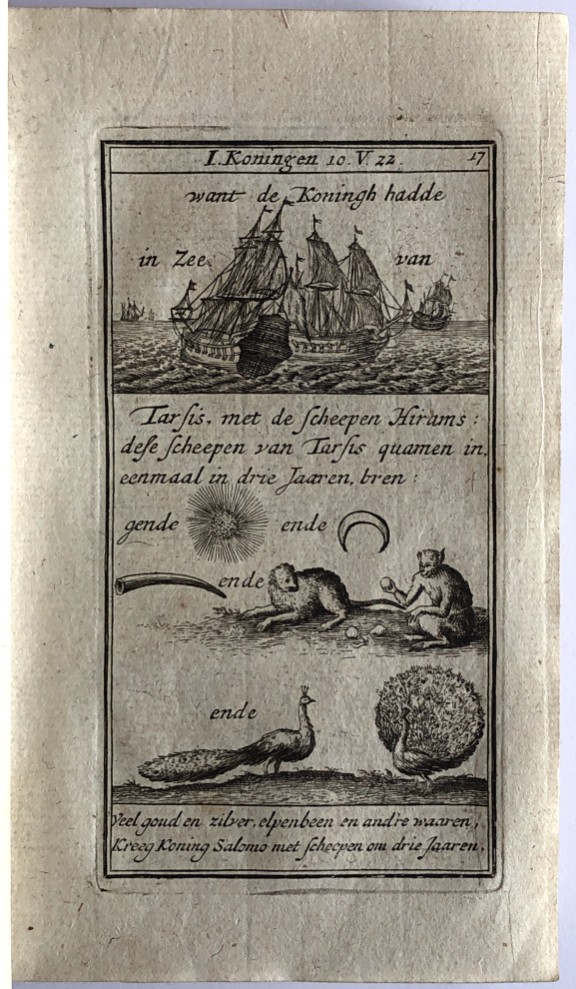 I. Koningen 10. V. 22. 17
want de Koningh hadde
in Zee van
Tarſis, met de ſcheepen Hirams :
deſe ſcheepen van Tarſis quamen in,
eenmaal in drie Jaaren, bren :
gende ende
ende
ende
Veel goud en zilver, elpenbeen en andre waaren,
Kreeg Koning Salomo met ſcheepen om drie Jaaren.